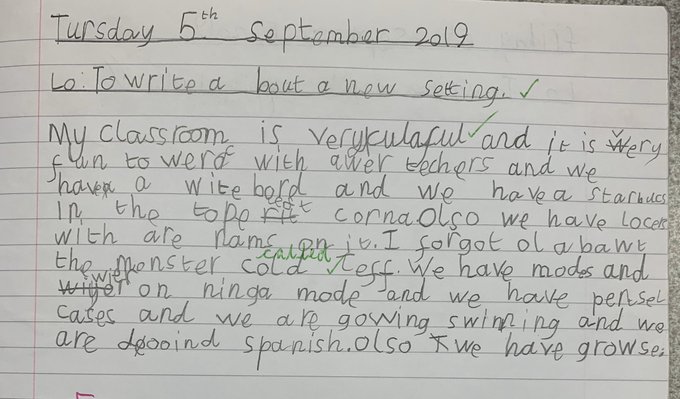 Tursday 5th September 2019
Lo: To write a bout a new setting. ✓
My classroom is verykulaful ✓ and it is very
fun to werd with awer techers and we
have a wite bord and we have a starbucs
in the tope left corna. Olso we have locers
with are nams on it. I forgot ol a bawt
called
the monster cold Teff. We have modes and
wier
on ninga mode and we have pensel
cases and we are gowing swimming and we
are dooind spanish. Olso we have growse.